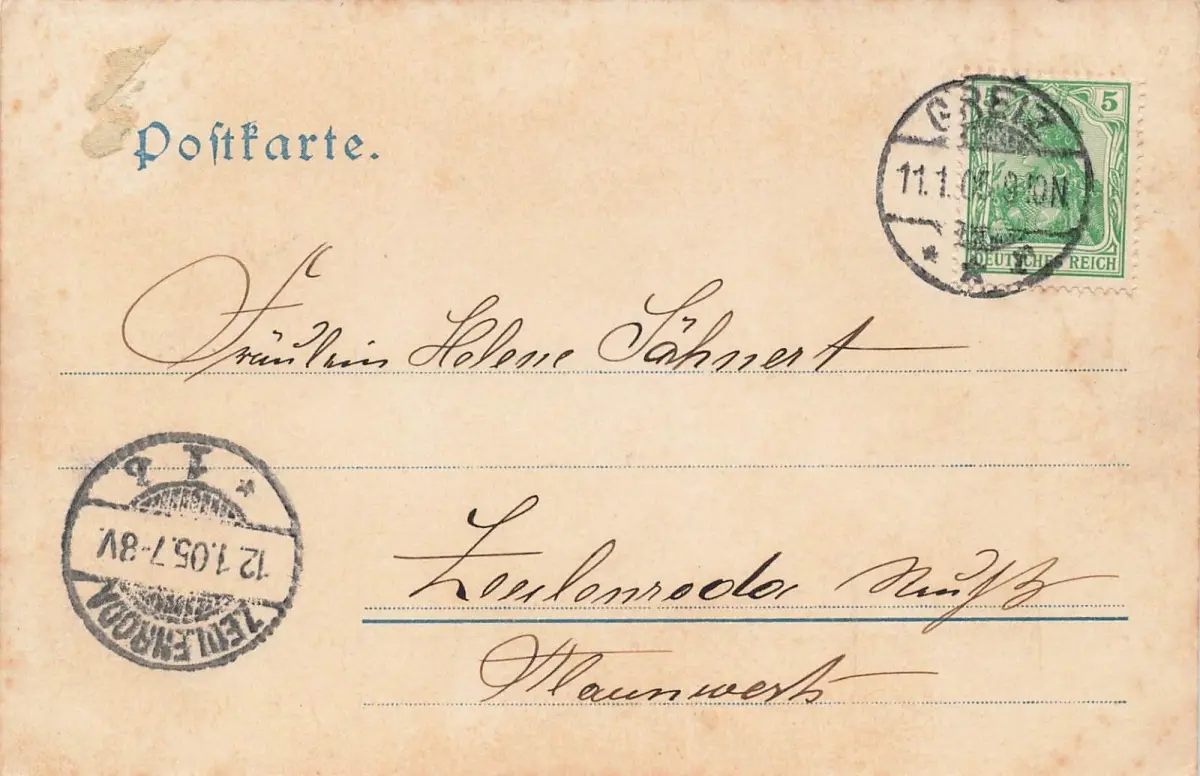 Postkarte.
5 5
GREIZ
11.1.05. 9-10N
* 1
DEUTSCHES REICH
Fräulein Helene Sähnert
* 1 b
12.1.05.7-8V.
ZEULENRODA
Zeulenroda